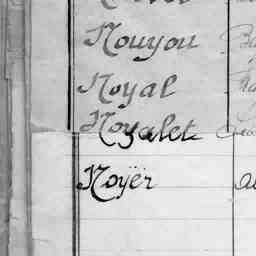 Nouyou
Noyal
Noyalet
Noyër